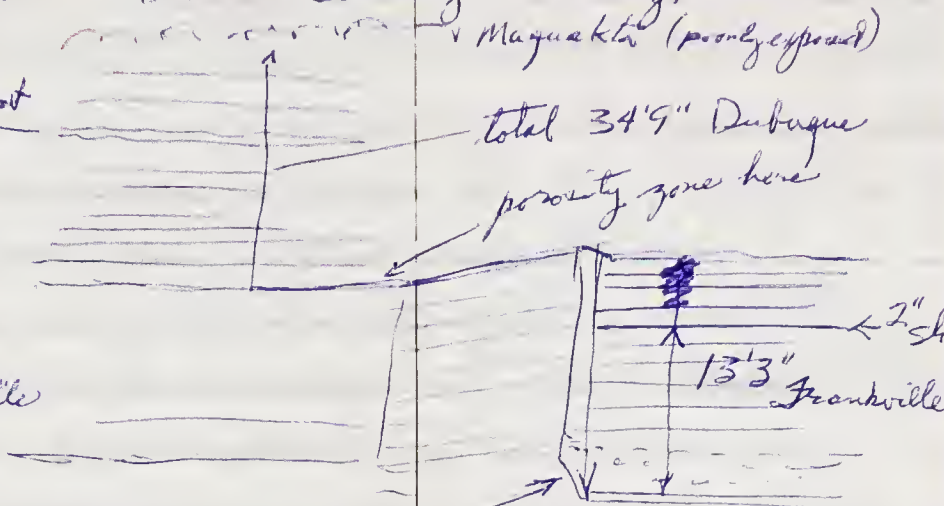 Maquakta (poorly exposed)
total 34'9" Dubuque
porosity zone here
2" sh
13'3" Frankville